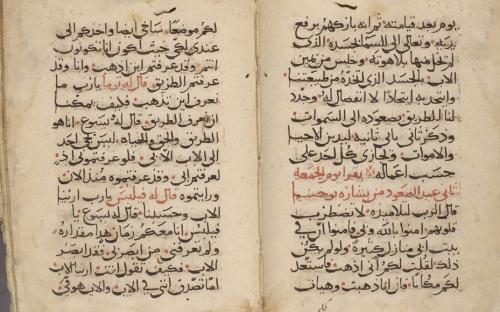 يوم بعد قيامته ثم انه باركهم برفع
يديه وتعالى الى السما بالجسد الذى
بلاهوته وجلس من يمين
الاب بالجسد الذى اخذه من طبيعتنا
واتحد به اتحادًا لا انفصال له وجدد
لنا الطريق بصعوده الى السموات
ياتى تانيه ليدين الاحيا
والاموات ويجازى كل احد على
حسب اعماله يقرا يوم الجمعه
تانى عيد الصعود من بشاره يوحنا
قال الرب لتلاميذه لا تضطرب
قلوبهم امنوا بالله وبى فامنوا ان فى
بيت ابى منازل كثيرة ولو لم يكن
ذلك لقلت لكم انى اذهب فاستعد
لكم مكانا فان انا ذهبت وهيات
لكم موضعًا ساجى ايضا واخدكم الى
عندى لكى حيث اكون انا تكونون
انتم وقد عرفتم اين اذهب وانا وقد
عرفتم الطريق قال له توما يا رب ما
نعرف اين تذهب فكيف يمكننا
ان نعرف الطريق قال له يسوع انا هو
الطريق والحق والحياه ليس يجى احد
الى الاب الا بى فلو عرفتمونى اذن
لعرفتم ابى وقد عرفتموه منذ الان
ورايتموه قال له فيلبس يا رب ارنا
الاب وحسبنا قال له يسوع يا
فيلبس انا معكم زمان هدا مقداره
ولم تعرفنى من ابصرنى فقد ابصر
الاب فكيف تقول انت ارنا الاب
اما تصدق اننى فى الاب والاب هو فى